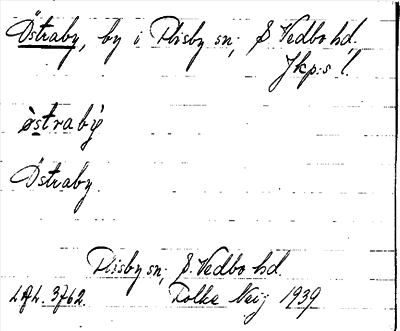 Östraby, by i Flisby sn, S. Vedbo hd,
Jkp:s l.
òstrabỳ
Östraby.
Flisby sn, S. Vedbo hd.
L.A.L. 3762. Folke Neij 1939